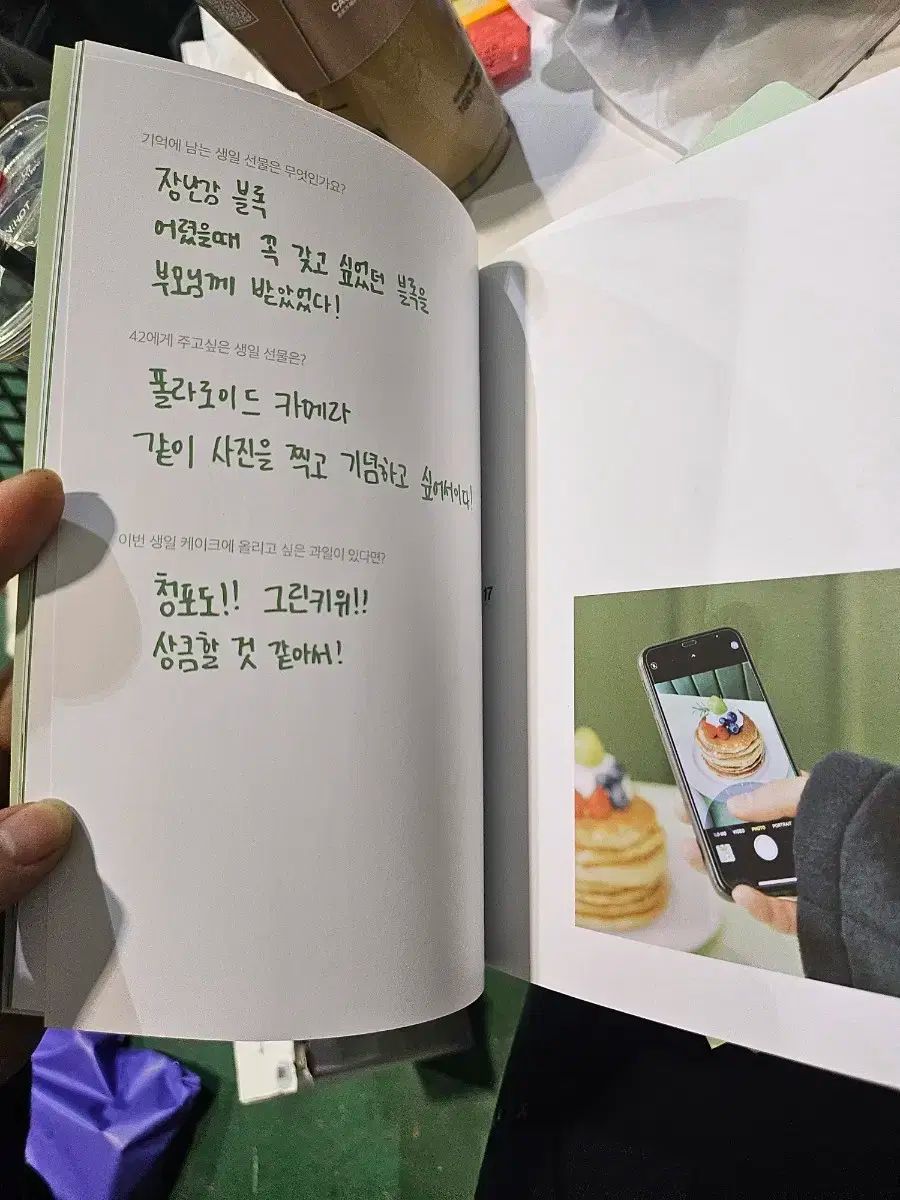 기억에 남는 생일 선물은 무엇인가요?
장난감 블록
어렸을때 꼭 갖고 싶었던 블록을
부모님께 받았었다!
42에게 주고싶은 생일 선물은?
폴라로이드 카메라
같이 사진을 찍고 기념하고 싶어서이다!
이번 생일 케이크에 올리고 싶은 과일이 있다면?
청포도!! 그린키위!!
상큼할 것 같아서!
17
VIDEO PHOTO PORTRAIT